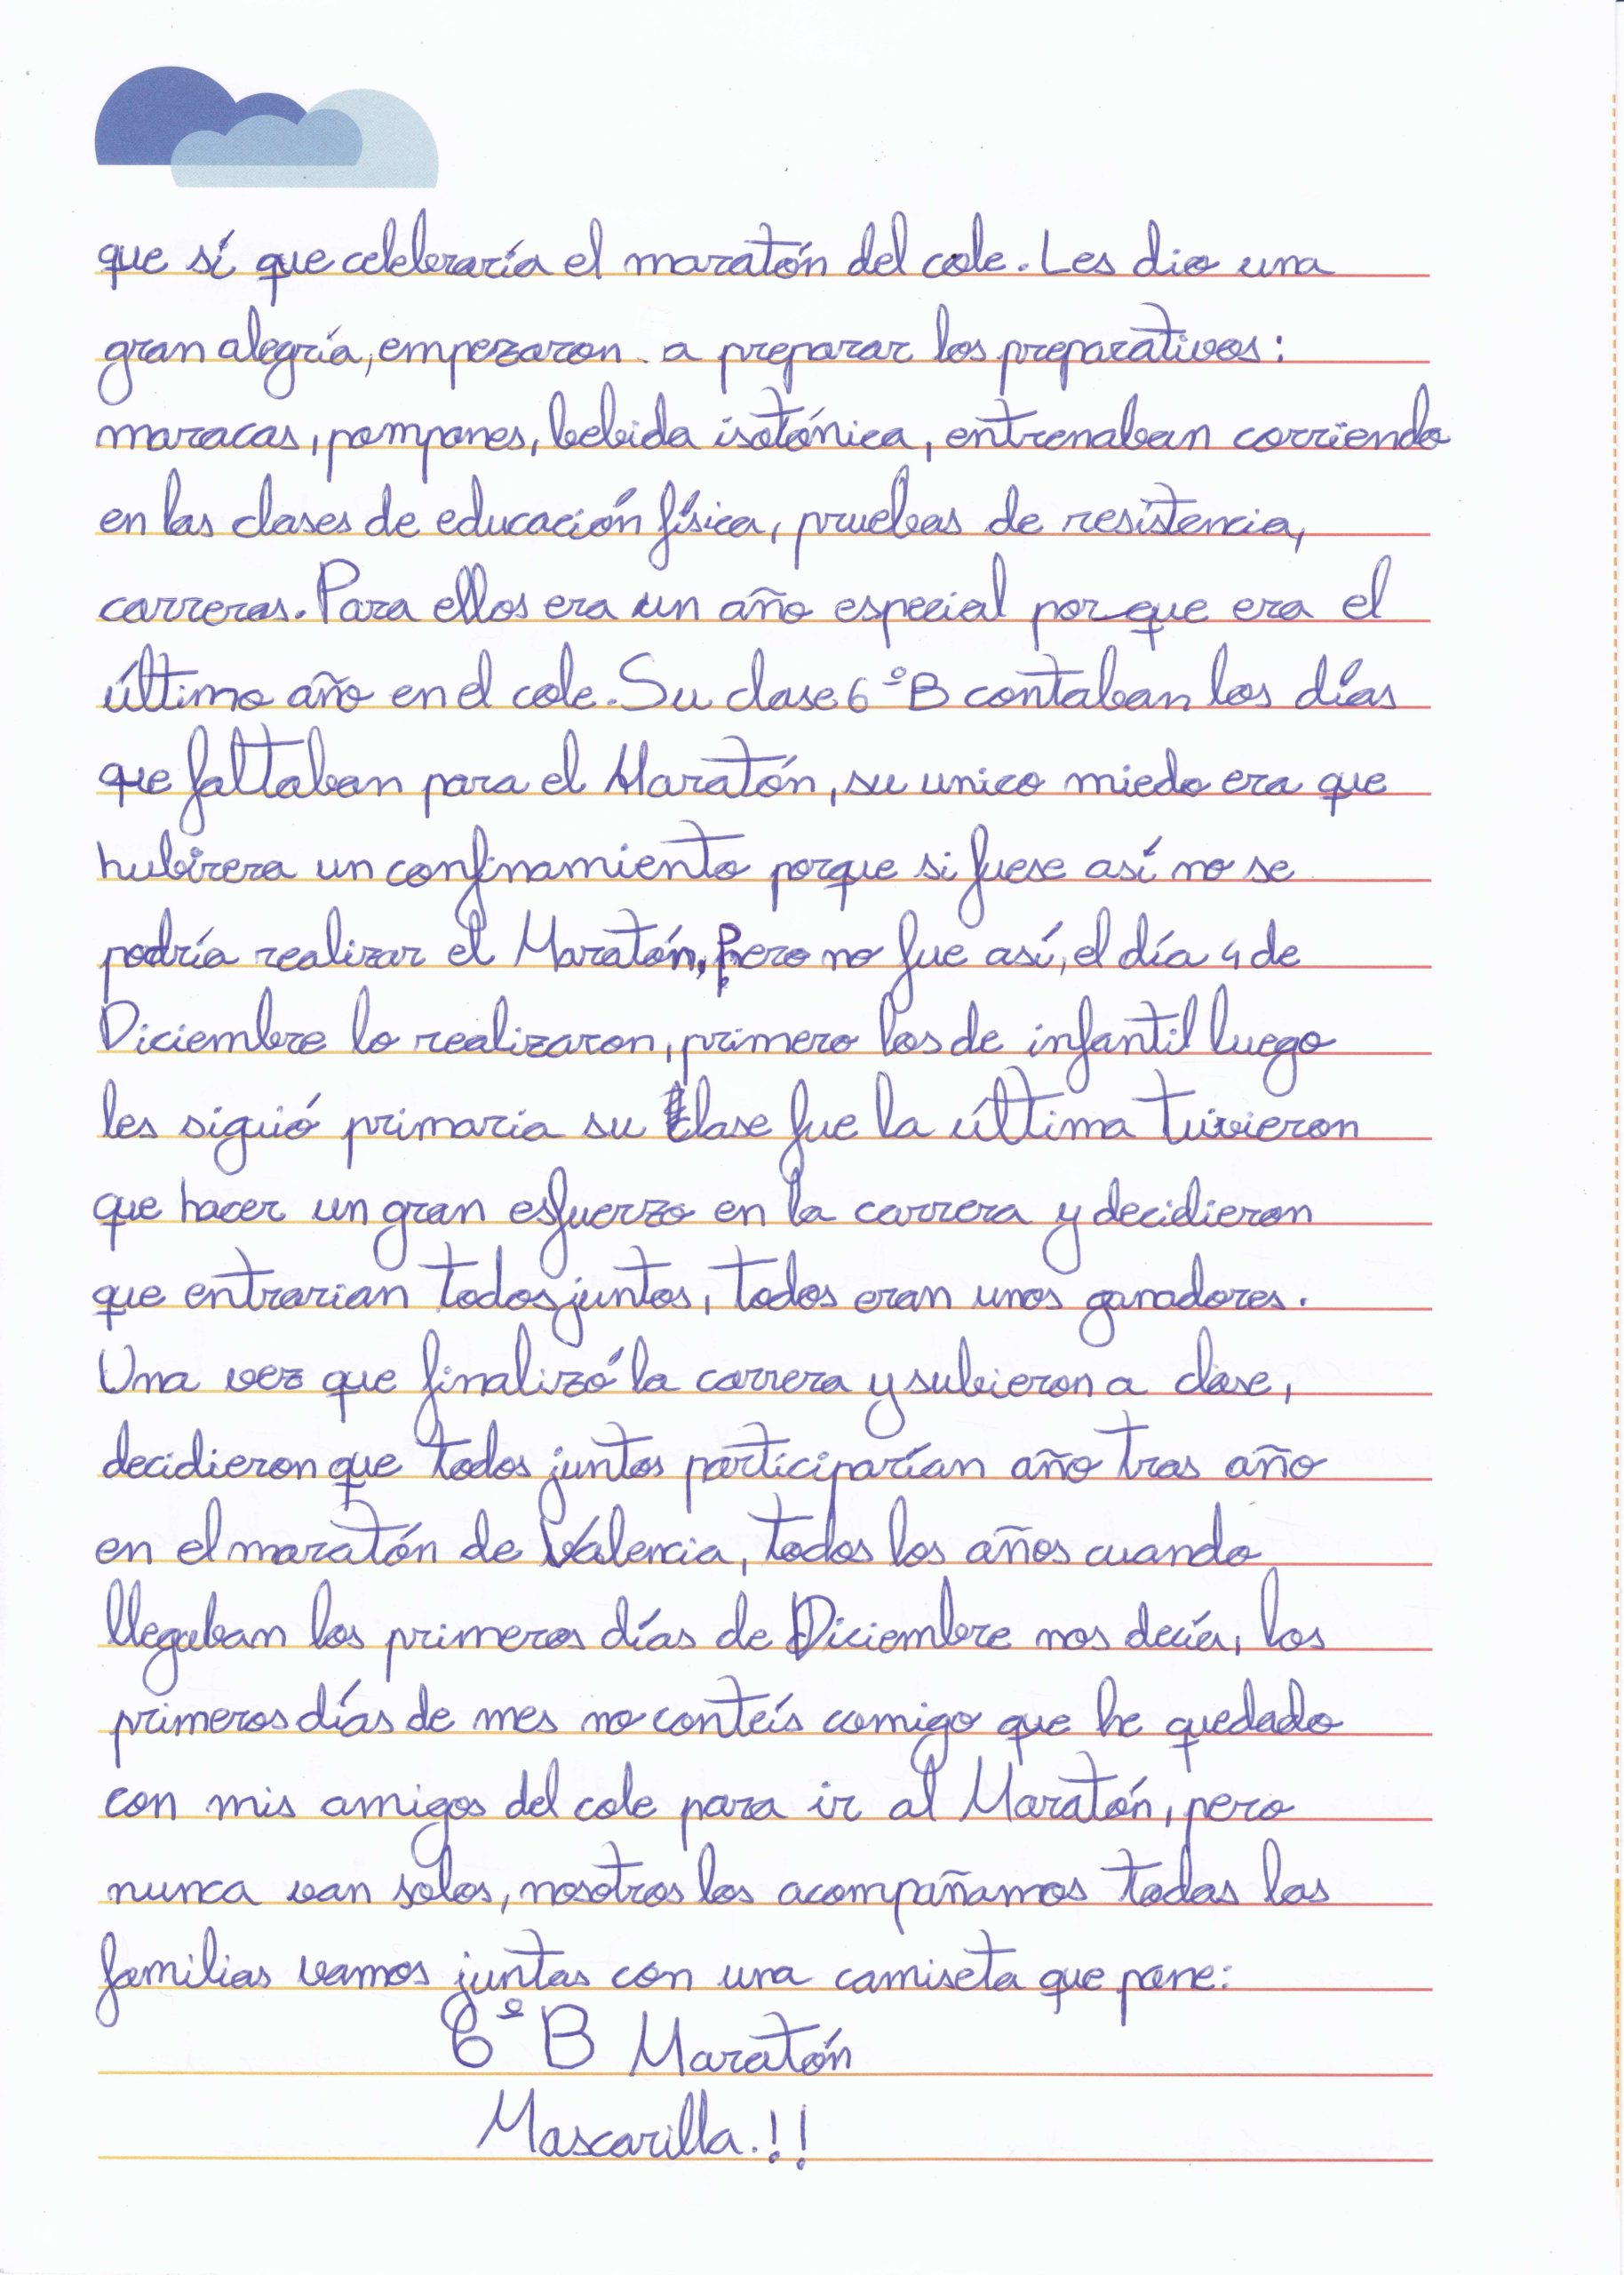 que sí que celebraría el maratón del cole. Les dio una
gran alegría, empezaron a preparar los preparativos:
maracas, pompones, bebida isotónica, entrenaban corriendo
en las clases de educación física, pruebas de resistencia,
carreras. Para ellos era un año especial porque era el
último año en el cole. Su clase 6º B contaban los días
que faltaban para el Maratón, su unico miedo era que
hubirera un confinamiento porque si fuese así no se
podría realizar el Maratón, Pero no fue así, el día 4 de
Diciembre lo realizaron, primero los de infantil luego
les siguió primaria su clase fue la última tuvieron
que hacer un gran esfuerzo en la carrera y decidieron
que entrarian todos juntos, todos eran unos ganadores.
Una vez que finalizó la carrera y subieron a clase,
decidieron que todos juntos participarían año tras año
en el maratón de Valencia, todos los años cuando
llegaban los primeros días de Diciembre nos decía, los
primeros días de mes no conteís comigo que he quedado
con mis amigos del cole para ir al Maratón, pero
nunca van solos, nosotros los acompañamos todas las
familias vamos juntas con una camiseta que pone:
6º B Maratón
Mascarilla.!!